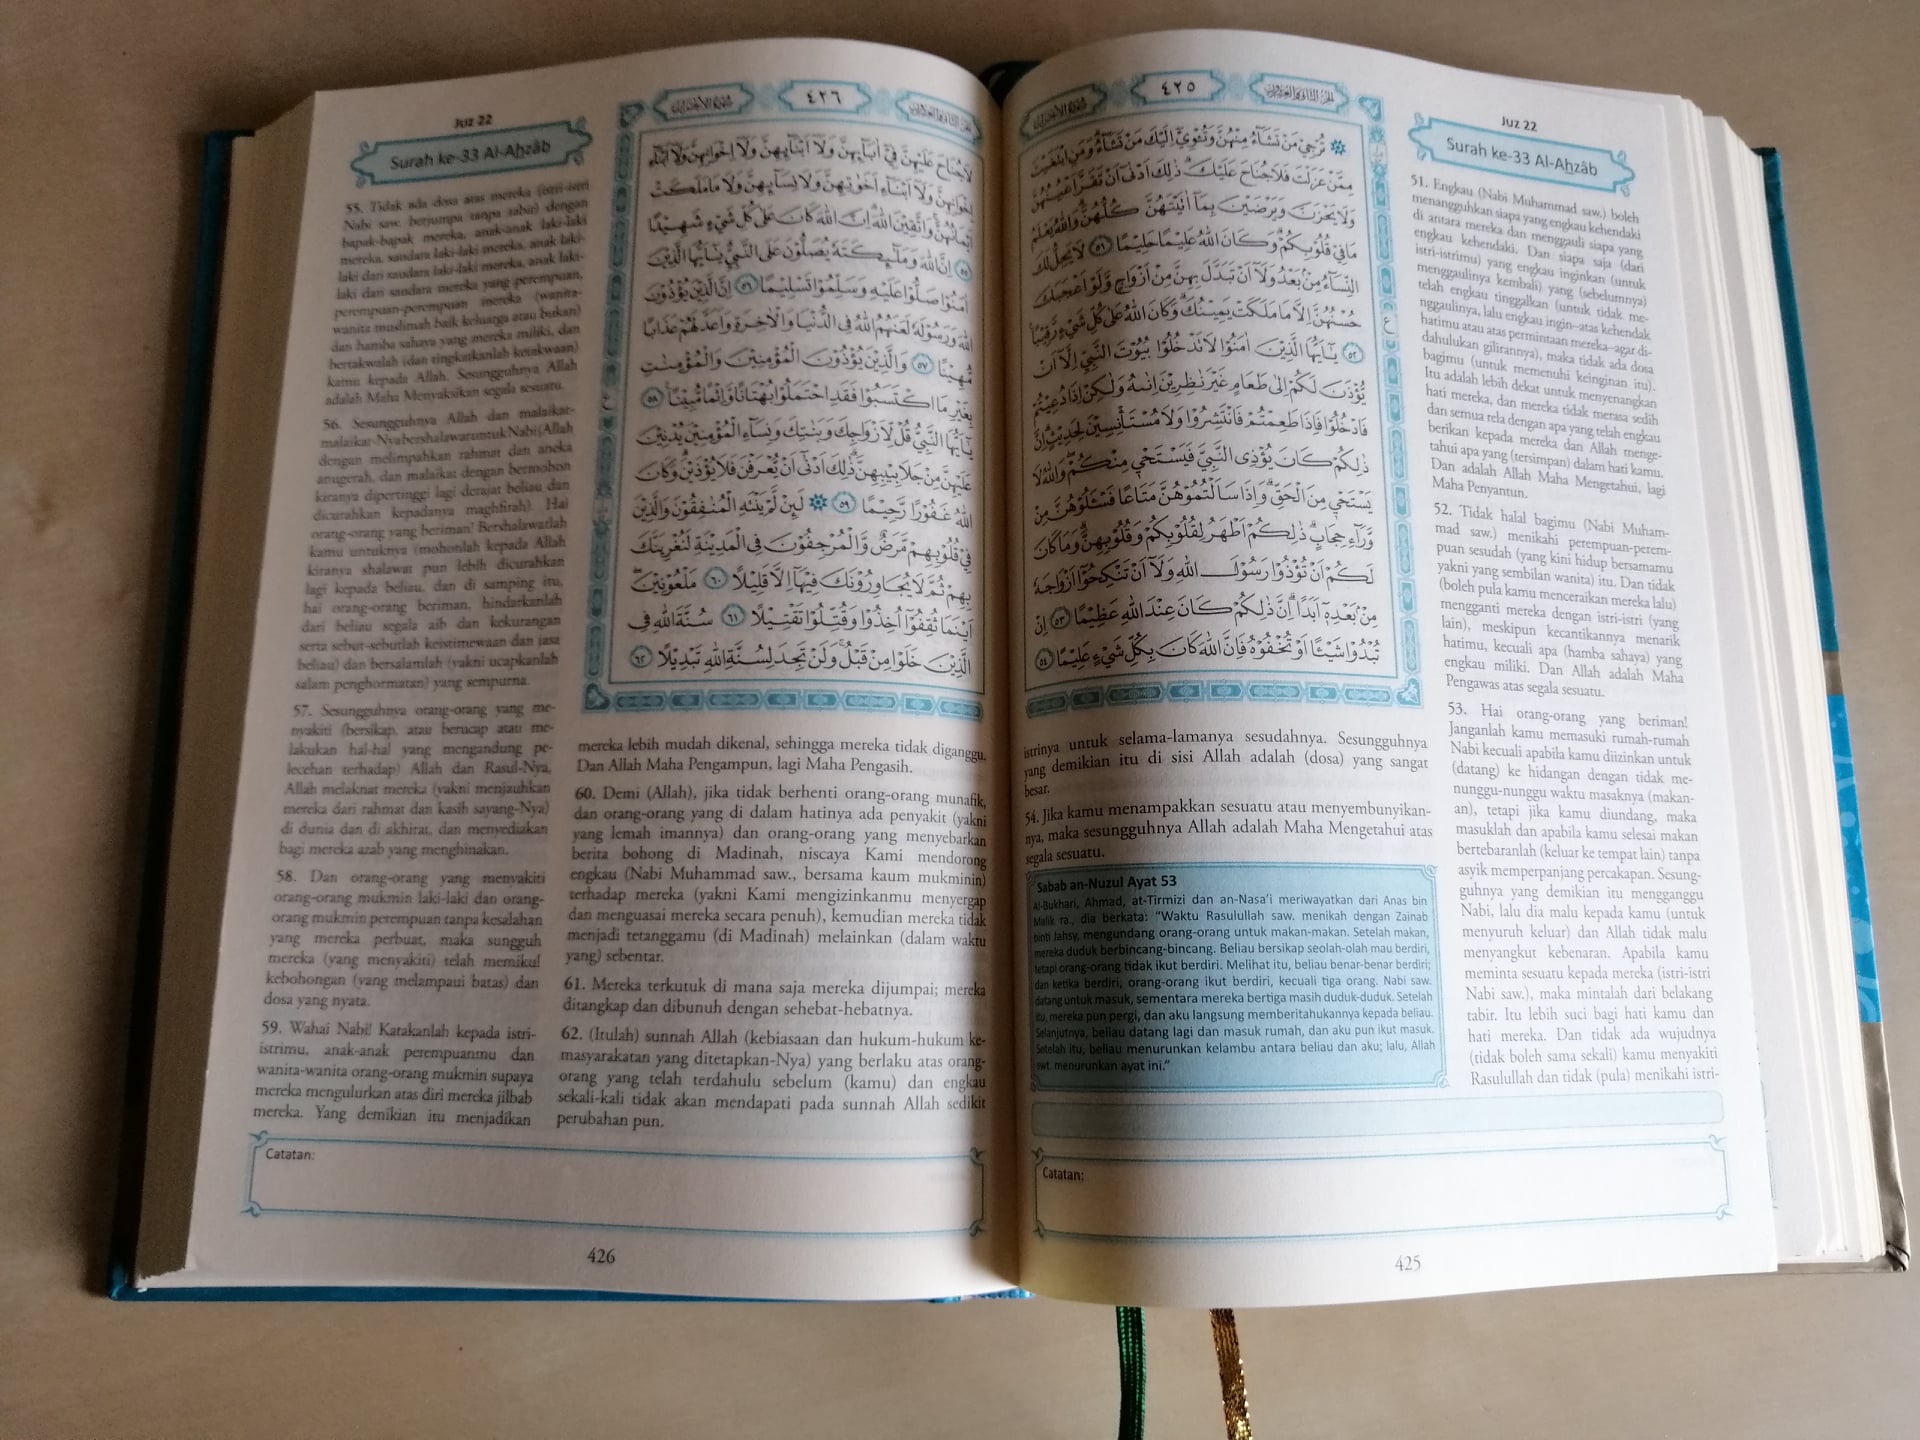 Juz 22
Surah ke-33 Al-Ahzâb
٤٢٥
تُرْجِيْ مَنْ تَشَاۤءُ مِنْهُنَّ وَتُـْٔوِيْٓ اِلَيْكَ مَنْ تَشَاۤءُ وَمَنِ ابْتَغَيْتَ
مِمَّنْ عَزَلْتَ فَلَا جُنَاحَ عَلَيْكَ ذٰلِكَ اَدْنٰٓى اَنْ تَقَرَّ اَعْيُنُهُنَّ
وَلَا يَحْزَنَّ وَيَرْضَيْنَ بِمَآ اٰتَيْتَهُنَّ كُلُّهُنَّ وَاللّٰهُ يَعْلَمُ
مَا فِيْ قُلُوْبِكُمْ وَكَانَ اللّٰهُ عَلِيْمًا حَلِيْمًا ٥١ لَا يَحِلُّ لَكَ
النِّسَاۤءُ مِنْۢ بَعْدُ وَلَآ اَنْ تَبَدَّلَ بِهِنَّ مِنْ اَزْوَاجٍ وَّلَوْ اَعْجَبَكَ
حُسْنُهُنَّ اِلَّا مَا مَلَكَتْ يَمِيْنُكَ وَكَانَ اللّٰهُ عَلٰى كُلِّ شَيْءٍ رَّقِيْبًا
٥٢ يٰٓاَيُّهَا الَّذِيْنَ اٰمَنُوْا لَا تَدْخُلُوْا بُيُوْتَ النَّبِيِّ اِلَّآ اَنْ
يُّؤْذَنَ لَكُمْ اِلٰى طَعَامٍ غَيْرَ نٰظِرِيْنَ اِنٰىهُ وَلٰكِنْ اِذَا دُعِيْتُمْ
فَادْخُلُوْا فَاِذَا طَعِمْتُمْ فَانْتَشِرُوْا وَلَا مُسْتَأْنِسِيْنَ لِحَدِيْثٍ اِنَّ
ذٰلِكُمْ كَانَ يُؤْذِى النَّبِيَّ فَيَسْتَحْيٖ مِنْكُمْ وَاللّٰهُ لَا
يَسْتَحْيٖ مِنَ الْحَقِّ وَاِذَا سَاَلْتُمُوْهُنَّ مَتَاعًا فَسْـَٔلُوْهُنَّ مِنْ
وَّرَاۤءِ حِجَابٍ ذٰلِكُمْ اَطْهَرُ لِقُلُوْبِكُمْ وَقُلُوْبِهِنَّ وَمَا كَانَ
لَكُمْ اَنْ تُؤْذُوْا رَسُوْلَ اللّٰهِ وَلَآ اَنْ تَنْكِحُوْٓا اَزْوَاجَهٗ
مِنْۢ بَعْدِهٖٓ اَبَدًا اِنَّ ذٰلِكُمْ كَانَ عِنْدَ اللّٰهِ عَظِيْمًا ٥٣ اِنْ
تُبْدُوْا شَيْـًٔا اَوْ تُخْفُوْهُ فَاِنَّ اللّٰهَ كَانَ بِكُلِّ شَيْءٍ عَلِيْمًا ٥٤
51. Engkau (Nabi Muhammad saw.) boleh
menangguhkan siapa yang engkau kehendaki
di antara mereka dan menggauli siapa yang
engkau kehendaki. Dan siapa saja (dari
istri-istrimu) yang engkau inginkan (untuk
menggaulinya kembali) yang (sebelumnya)
telah engkau tinggalkan (untuk tidak me-
nggaulinya, lalu engkau ingin–atas kehendak
hatimu atau atas permintaan mereka–agar di-
dahulukan gilirannya), maka tidak ada dosa
bagimu (untuk memenuhi keinginan itu).
Itu adalah lebih dekat untuk menyenangkan
hati mereka, dan mereka tidak merasa sedih
dan semua rela dengan apa yang telah engkau
berikan kepada mereka dan Allah menge-
tahui apa yang (tersimpan) dalam hati kamu.
Dan adalah Allah Maha Mengetahui, lagi
Maha Penyantun.
52. Tidak halal bagimu (Nabi Muham-
mad saw.) menikahi perempuan-perem-
puan sesudah (yang kini hidup bersamamu
yakni yang sembilan wanita) itu. Dan tidak
(boleh pula kamu menceraikan mereka lalu)
mengganti mereka dengan istri-istri (yang
lain), meskipun kecantikannya menarik
hatimu, kecuali apa (hamba sahaya) yang
engkau miliki. Dan Allah adalah Maha
Pengawas atas segala sesuatu.
53. Hai orang-orang yang beriman!
Janganlah kamu memasuki rumah-rumah
Nabi kecuali apabila kamu diizinkan untuk
(datang) ke hidangan dengan tidak me-
nunggu-nunggu waktu masaknya (makan-
an), tetapi jika kamu diundang, maka
masuklah dan apabila kamu selesai makan
bertebaranlah (keluar ke tempat lain) tanpa
asyik memperpanjang percakapan. Sesung-
guhnya yang demikian itu mengganggu
Nabi, lalu dia malu kepada kamu (untuk
menyuruh keluar) dan Allah tidak malu
menyangkut kebenaran. Apabila kamu
meminta sesuatu kepada mereka (istri-istri
Nabi saw.), maka mintalah dari belakang
tabir. Itu lebih suci bagi hati kamu dan
hati mereka. Dan tidak ada wujudnya
(tidak boleh sama sekali) kamu menyakiti
Rasulullah dan tidak (pula) menikahi istri-
istrinya untuk selama-lamanya sesudahnya. Sesungguhnya
yang demikian itu di sisi Allah adalah (dosa) yang sangat
besar.
54. Jika kamu menampakkan sesuatu atau menyembunyikan-
nya, maka sesungguhnya Allah adalah Maha Mengetahui atas
segala sesuatu.
Sabab an-Nuzul Ayat 53
Al-Bukhari, Ahmad, at-Tirmizi dan an-Nasa'i meriwayatkan dari Anas bin
Malik ra., dia berkata: "Waktu Rasulullah saw. menikah dengan Zainab
binti Jahsy, mengundang orang-orang untuk makan-makan. Setelah makan,
mereka duduk berbincang-bincang. Beliau bersikap seolah-olah mau berdiri,
tetapi orang-orang tidak ikut berdiri. Melihat itu, beliau benar-benar berdiri;
dan ketika berdiri, orang-orang ikut berdiri, kecuali tiga orang. Nabi saw.
datang untuk masuk, sementara mereka bertiga masih duduk-duduk. Setelah
itu, mereka pun pergi, dan aku langsung memberitahukannya kepada beliau.
Selanjutnya, beliau datang lagi dan masuk rumah, dan aku pun ikut masuk.
Setelah itu, beliau menurunkan kelambu antara beliau dan aku; lalu, Allah
swt. menurunkan ayat ini."
Catatan:
425
Juz 22
Surah ke-33 Al-Ahzâb
٤٢٦
لَا جُنَاحَ عَلَيْهِنَّ فِيْٓ اٰبَاۤىِٕهِنَّ وَلَآ اَبْنَاۤىِٕهِنَّ وَلَآ اِخْوَانِهِنَّ وَلَآ اَبْنَاۤءِ
اِخْوَانِهِنَّ وَلَآ اَبْنَاۤءِ اَخَوٰتِهِنَّ وَلَا نِسَاۤىِٕهِنَّ وَلَا مَا مَلَكَتْ
اَيْمَانُهُنَّ وَاتَّقِيْنَ اللّٰهَ اِنَّ اللّٰهَ كَانَ عَلٰى كُلِّ شَيْءٍ شَهِيْدًا
٥٥ اِنَّ اللّٰهَ وَمَلٰۤىِٕكَتَهٗ يُصَلُّوْنَ عَلَى النَّبِيِّ يٰٓاَيُّهَا الَّذِيْنَ
اٰمَنُوْا صَلُّوْا عَلَيْهِ وَسَلِّمُوْا تَسْلِيْمًا ٥٦ اِنَّ الَّذِيْنَ يُؤْذُوْنَ
اللّٰهَ وَرَسُوْلَهٗ لَعَنَهُمُ اللّٰهُ فِى الدُّنْيَا وَالْاٰخِرَةِ وَاَعَدَّ لَهُمْ عَذَابًا
مُّهِيْنًا ٥٧ وَالَّذِيْنَ يُؤْذُوْنَ الْمُؤْمِنِيْنَ وَالْمُؤْمِنٰتِ
بِغَيْرِ مَا اكْتَسَبُوْا فَقَدِ احْتَمَلُوْا بُهْتَانًا وَّاِثْمًا مُّبِيْنًا ٥٨
يٰٓاَيُّهَا النَّبِيُّ قُلْ لِّاَزْوَاجِكَ وَبَنٰتِكَ وَنِسَاۤءِ الْمُؤْمِنِيْنَ يُدْنِيْنَ
عَلَيْهِنَّ مِنْ جَلَابِيْبِهِنَّ ذٰلِكَ اَدْنٰٓى اَنْ يُّعْرَفْنَ فَلَا يُؤْذَيْنَ وَكَانَ
اللّٰهُ غَفُوْرًا رَّحِيْمًا ٥٩ لَىِٕنْ لَّمْ يَنْتَهِ الْمُنٰفِقُوْنَ وَالَّذِيْنَ
فِيْ قُلُوْبِهِمْ مَّرَضٌ وَّالْمُرْجِفُوْنَ فِى الْمَدِيْنَةِ لَنُغْرِيَنَّكَ
بِهِمْ ثُمَّ لَا يُجَاوِرُوْنَكَ فِيْهَآ اِلَّا قَلِيْلًا ٦٠ مَلْعُوْنِيْنَ
اَيْنَمَا ثُقِفُوْٓا اُخِذُوْا وَقُتِّلُوْا تَقْتِيْلًا ٦١ سُنَّةَ اللّٰهِ فِى
الَّذِيْنَ خَلَوْا مِنْ قَبْلُ وَلَنْ تَجِدَ لِسُنَّةِ اللّٰهِ تَبْدِيْلًا ٦٢
55. Tidak ada dosa atas mereka (istri-istri
Nabi saw. berjumpa tanpa tabir) dengan
bapak-bapak mereka, anak-anak laki-laki
mereka, saudara laki-laki mereka, anak laki-
laki dari saudara laki-laki mereka, anak laki-
laki dari saudara mereka yang perempuan,
perempuan-perempuan mereka (wanita-
wanita muslimah baik keluarga atau bukan)
dan hamba sahaya yang mereka miliki, dan
bertakwalah (dan tingkatkanlah ketakwaan)
kamu kepada Allah. Sesungguhnya Allah
adalah Maha Menyaksikan segala sesuatu.
56. Sesungguhnya Allah dan malaikat-
malaikat-Nya bershalawat untuk Nabi (Allah
dengan melimpahkan rahmat dan aneka
anugerah, dan malaikat dengan bermohon
kiranya dipertinggi lagi derajat beliau dan
dicurahkan kepadanya maghfirah). Hai
orang-orang yang beriman! Bershalawatlah
kamu untuknya (mohonlah kepada Allah
kiranya shalawat pun lebih dicurahkan
lagi kepada beliau, dan di samping itu,
hai orang-orang beriman, hindarkanlah
dari beliau segala aib dan kekurangan
serta sebut-sebutlah keistimewaan dan jasa
beliau) dan bersalamlah (yakni ucapkanlah
salam penghormatan) yang sempurna.
57. Sesungguhnya orang-orang yang me-
nyakiti (bersikap, atau berucap atau me-
lakukan hal-hal yang mengandung pe-
lecehan terhadap) Allah dan Rasul-Nya,
Allah melaknat mereka (yakni menjauhkan
mereka dari rahmat dan kasih sayang-Nya)
di dunia dan di akhirat, dan menyediakan
bagi mereka azab yang menghinakan.
58. Dan orang-orang yang menyakiti
orang-orang mukmin laki-laki dan orang-
orang mukmin perempuan tanpa kesalahan
yang mereka perbuat, maka sungguh
mereka (yang menyakiti) telah memikul
kebohongan (yang melampaui batas) dan
dosa yang nyata.
59. Wahai Nabi! Katakanlah kepada istri-
istrimu, anak-anak perempuanmu dan
wanita-wanita orang-orang mukmin supaya
mereka mengulurkan atas diri mereka jilbab
mereka. Yang demikian itu menjadikan
mereka lebih mudah dikenal, sehingga mereka tidak diganggu.
Dan Allah Maha Pengampun, lagi Maha Pengasih.
60. Demi (Allah), jika tidak berhenti orang-orang munafik,
dan orang-orang yang di dalam hatinya ada penyakit (yakni
yang lemah imannya) dan orang-orang yang menyebarkan
berita bohong di Madinah, niscaya Kami mendorong
engkau (Nabi Muhammad saw., bersama kaum mukminin)
terhadap mereka (yakni Kami mengizinkanmu menyergap
dan menguasai mereka secara penuh), kemudian mereka tidak
menjadi tetanggamu (di Madinah) melainkan (dalam waktu
yang) sebentar.
61. Mereka terkutuk di mana saja mereka dijumpai; mereka
ditangkap dan dibunuh dengan sehebat-hebatnya.
62. (Itulah) sunnah Allah (kebiasaan dan hukum-hukum ke-
masyarakatan yang ditetapkan-Nya) yang berlaku atas orang-
orang yang telah terdahulu sebelum (kamu) dan engkau
sekali-kali tidak akan mendapati pada sunnah Allah sedikit
perubahan pun.
Catatan:
426